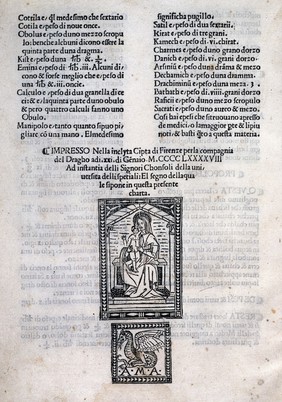 Cotila e / ql medesimo che sextario
Cotto e / peso di noue once.
Obolus e / peso duno mezo scropu
lo: benche alcuni dicono essere la
quinta parte duna dragma.
Kist e / peso duna
Emina e / peso di iii. Alcuni di
cono & forse meglio che e / peso di
una iii. once.
Calculo e / peso di dua granella di ce
ci & e / la quinta parte duno obulo
& pero quattro calculi fanno uno
Obulo.
Manipolo e / tanto quanto si puo pi
gliare cō una mano. El medesimo
significha pugillo.
Satil e / peso di dua sextarii.
Kirat e / peso di tre grani.
Kamech e / peso di .vi. chirat.
Charmes e / peso duno grano dorzo
Danich e / peso di .vi. grani dorzo
Darchini e / peso duna dramma
Dechamich e / peso duna dramma.
Drachiminū e / peso duna meza
Batbatb e / peso di .viii. grani dorzo
Raficii e / peso duno mezo scropulo
Sacrati e / peso duno auro & mezo.
Cosi bai epesi che si truouano apresso
de medici, o la maggior parte di loro
nioni & basti q̄sto a questa materia.
¶ IMPRESSO Nella inclyta Cipta di Firenze per la compagnia
del Dragho adi .xxi. di Gēnaio M.CCCCLXXXXVIII
Ad instantia delli Signori Chonsoli della uni
uersita delli spetiali: El segno della qua
le si pone in questa presente
charta.
A·M·A